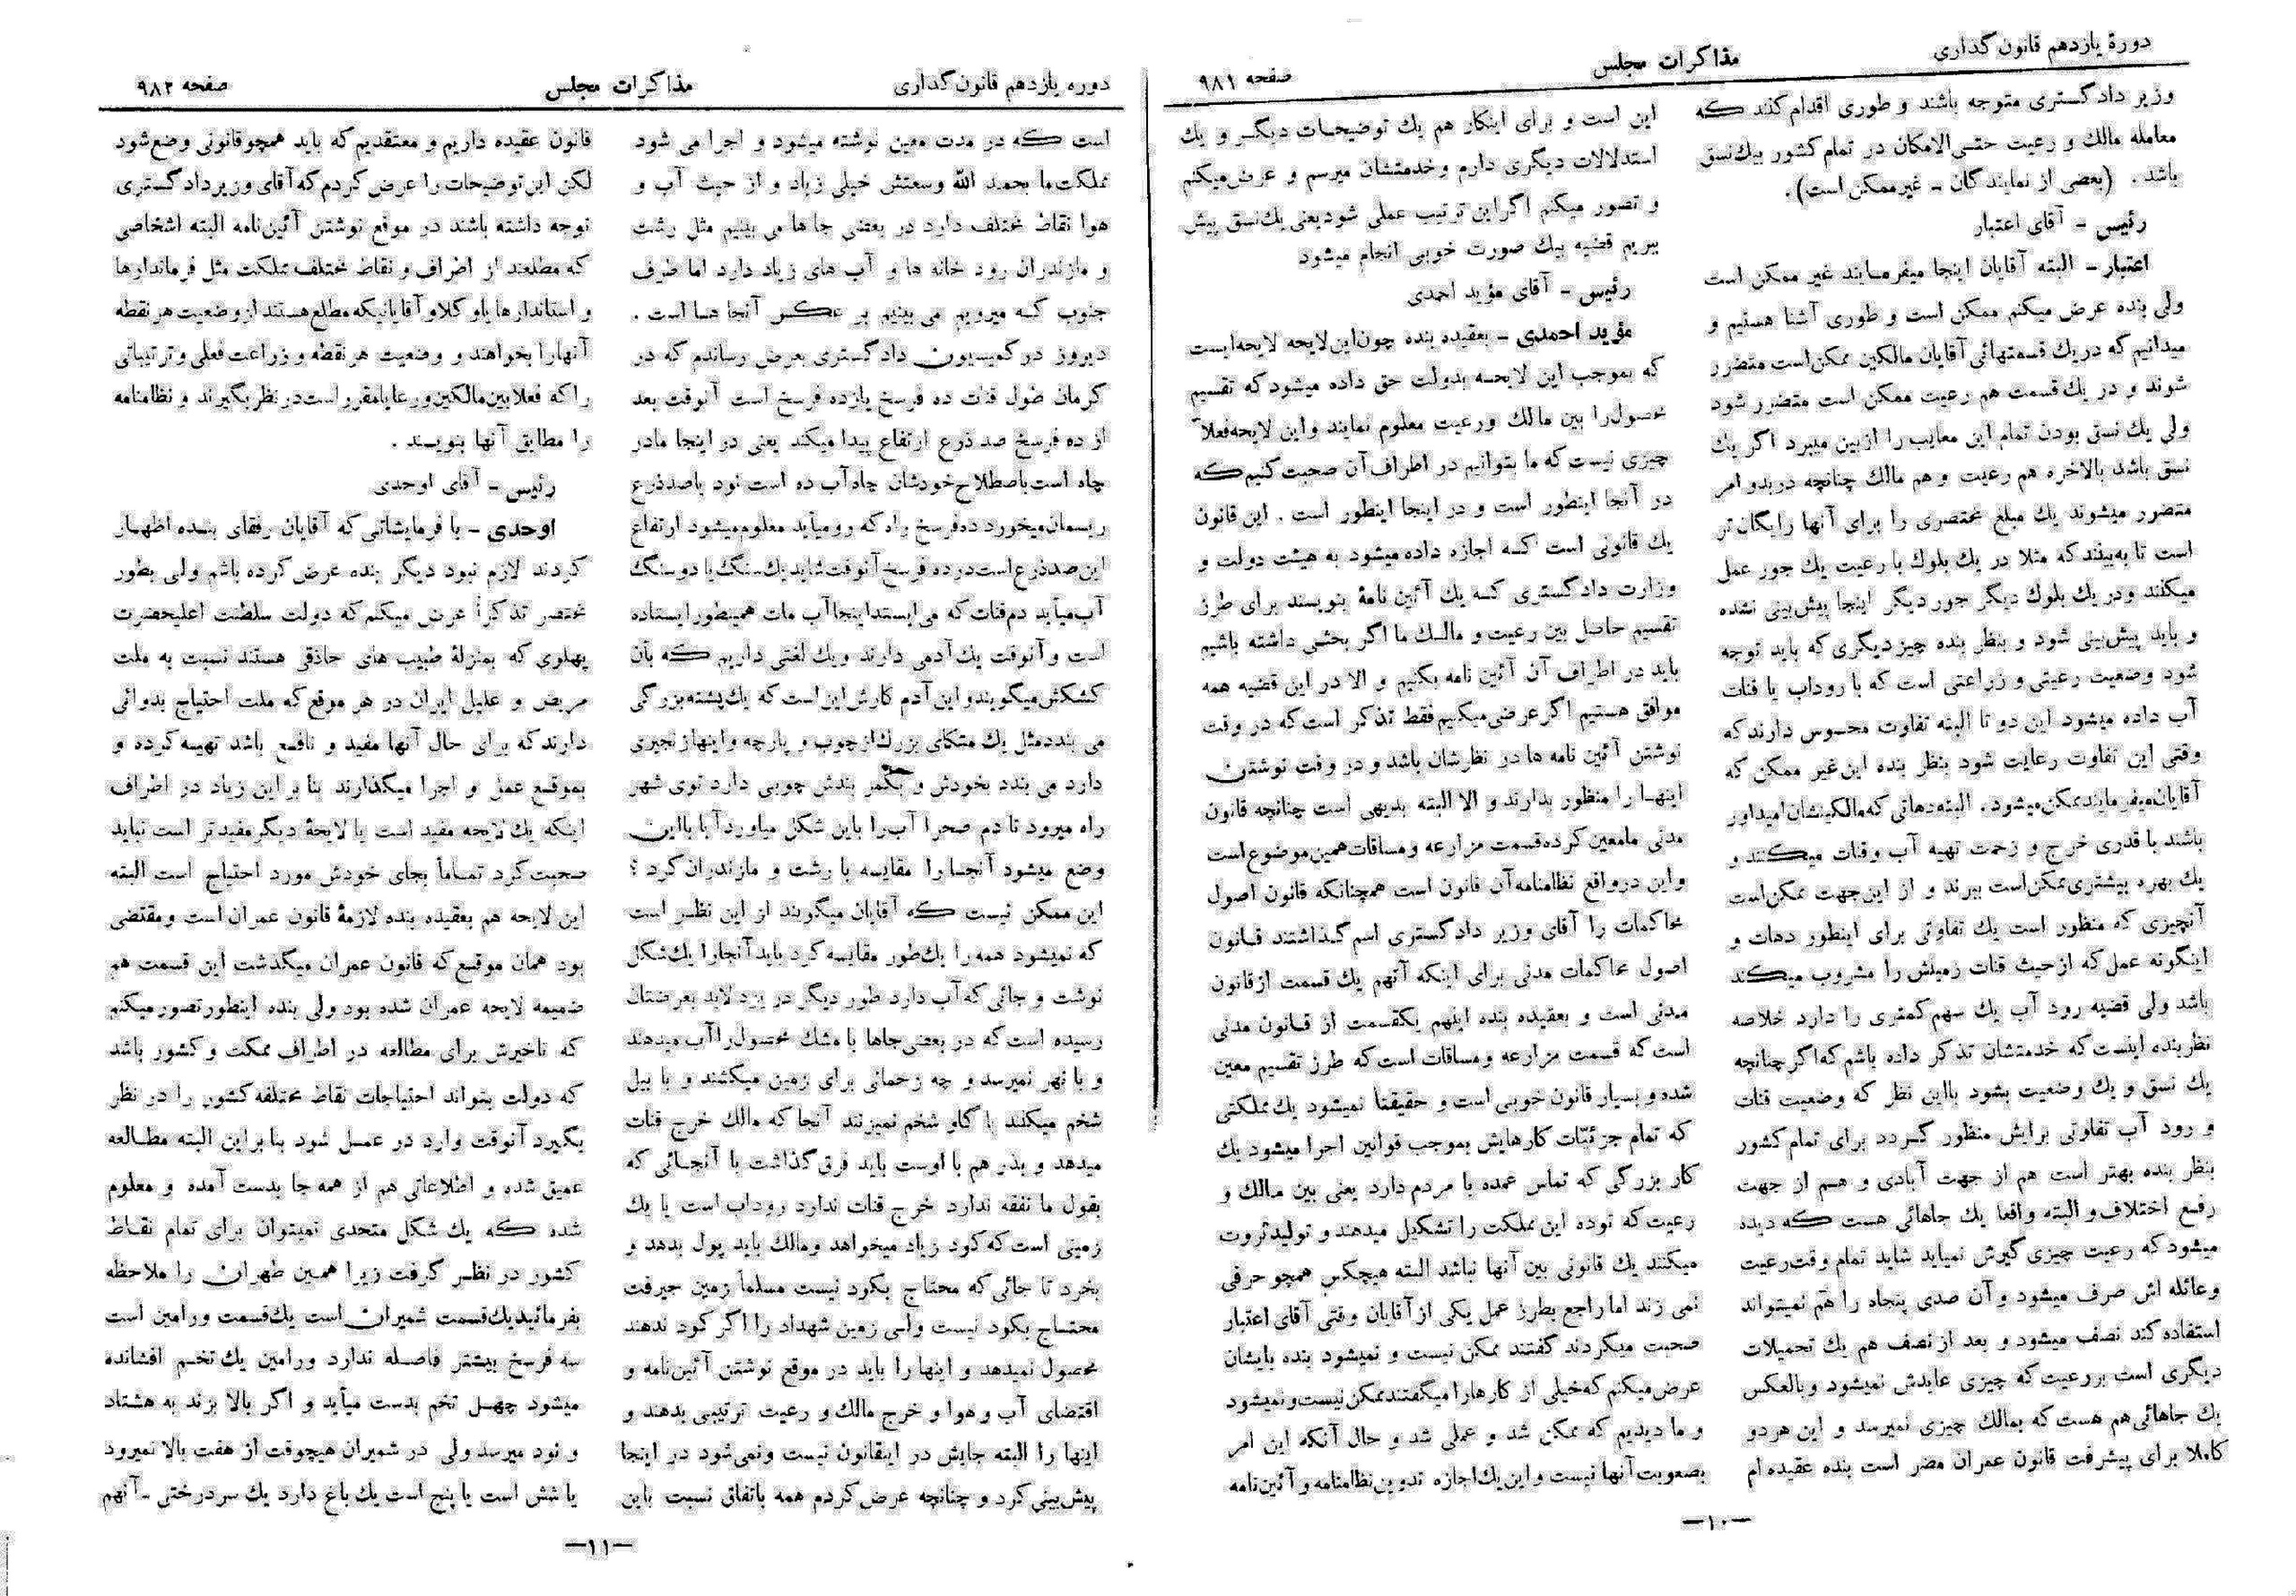 دورهٔ یازدهم قانون‌گذاری
مذاکرات مجلس
صفحه ۹۸۱
وزیر دادگستری متوجه باشند و طوری اقدام کنند که
معامله مالك و رعیت حتی‌الامکان در تمام کشور بیك نسق
باشد . (بعضی از نمایندگان ـ غیر ممکن است) .
رئیس ـ آقای اعتبار
اعتبار ـ البته آقایان اینجا میفرمایند غیر ممکن است
ولی بنده عرض میکنم ممکن است و طوری آشنا هستیم و
میدانیم که در یك قسمتهائی آقایان مالکین ممکن است متضرر
شوند و در یك قسمت هم رعیت ممکن است متضرر شود
ولی یك نسق بودن تمام این معایب را از بین میبرد اگر یك
نسق باشد بالاخره هم رعیت و هم مالك چنانچه در بدو امر
متضرر میشوند یك مبلغ مختصری را برای آنها رایگان‌تر
است تا به‌بینند که مثلا در یك بلوك با رعیت یك جور عمل
میکنند و در یك بلوك دیگر جور دیگر اینجا پیش‌بینی نشده
و باید پیش‌بینی شود و بنظر بنده چیز دیگری که باید توجه
شود وضعیت رعیتی و زراعتی است که با روداب یا قنات
آب داده میشود این دو تا البته تفاوت محسوس دارند که
وقتی این تفاوت رعایت شود بنظر بنده این غیر ممکن که
آقایان میفرمایند ممکن میشود . البته دهاتی که مالکینشان امیداور
باشند با قدری خرج و زحمت تهیه آب و قنات میکنند و
یك بهره بیشتری ممکن است ببرند و از این جهت ممکن است
آنچیزی که منظور است یك تفاوتی برای اینطور دهات و
اینگونه عمل که از حیث قنات زمینش را مشروب میکند
باشد ولی قضیه رود آب یك سهم کمتری را دارد خلاصه
نظر بنده اینست که خدمتشان تذکر داده باشم که اگر چنانچه
یك نسق و یك وضعیت بشود بااین نظر که وضعیت قنات
و رود آب تفاوتی برایش منظور گردد برای تمام کشور
بنظر بنده بهتر است هم از جهت آبادی و هم از جهت
رفع اختلاف و البته واقعا یك جاهائی هست که دیده
میشود که رعیت چیزی گیرش نمیاید شاید تمام وقت رعیت
و عائله اش صرف میشود و آن صدی پنجاه را هم نمیتواند
استفاده کند نصف میشود و بعد از نصف هم یك تحمیلات
دیگری است بر رعیت که چیزی عایدش نمیشود و بالعکس
یك جاهائی هم هست که بمالك چیزی نمیرسد و این هر دو
کاملا برای پیشرفت قانون عمران مضر است بنده عقیده ام
این است و برای اینکار هم یك توضیحات دیگر و یك
استدلالات دیگری دارم و خدمتشان میرسم و عرض میکنم
و تصور میکنم اگر این ترتیب عملی شود یعنی یك نسق پیش
ببریم قضیه بیك صورت خوبی انجام میشود
رئیس ـ آقای مؤید احمدی
مؤید احمدی ـ بعقیده بنده چون این لایحه لایحه‌ایست
که بموجب این لایحه بدولت حق داده میشود که تقسیم
محصول را بین مالك و رعیت معلوم نمایند و این لایحه فعلاً
چیزی نیست که ما بتوانیم در اطراف آن صحبت کنیم که
در آنجا اینطور است و در اینجا اینطور است . این قانون
یك قانونی است که اجازه داده میشود به هیئت دولت و
وزارت دادگستری که یك آئین نامهٔ بنویسند برای طرز
تقسیم حاصل بین رعیت و مالك ما اگر بحثی داشته باشیم
باید در اطراف آن آئین نامه بکنیم و الا در این قضیه همه
موافق هستیم اگر عرض میکنیم فقط تذکر است که در وقت
نوشتن آئین نامه ها در نظرشان باشد و در وقت نوشتن
اینها را منظور بدارند و الا البته بدیهی است چنانچه قانون
مدنی ما معین کرده قسمت مزارعه و مساقات همین موضوع است
و این در واقع نظامنامه آن قانون است همچنانکه قانون اصول
محاکمات را آقای وزیر دادگستری اسم گذاشتند قانون
اصول محاکمات مدنی برای اینکه آنهم یك قسمت از قانون
مدنی است و بعقیده بنده اینهم یکقسمت از قانون مدنی
است که قسمت مزارعه و مساقات است که طرز تقسیم معین
شده و بسیار قانون خوبی است و حقیقتاً نمیشود یك مملکتی
که تمام جزئیات کارهایش بموجب قوانین اجرا میشود یك
کار بزرگی که تماس عمده با مردم دارد یعنی بین مالك و
رعیت که توده این مملکت را تشکیل میدهند و تولید ثروت
میکنند یك قانونی بین آنها نباشد البته هیچکس همچو حرفی
نمی زند اما راجع بطرز عمل یکی از آقایان وقتی آقای اعتبار
صحبت میکردند گفتند ممکن نیست و نمیشود بنده بایشان
عرض میکنم که خیلی از کارها را میگفتند ممکن نیست و نمیشود
و ما دیدیم که ممکن شد و عملی شد و حال آنکه این امر
بصعوبت آنها نیست و این یك اجازه تدوین نظامنامه و آئین نامه
ـ۱۰ـ
دوره یازدهم قانون‌گذاری
مذاکرات مجلس
صفحه ۹۸۲
است که در مدت معین نوشته میشود و اجرا می شود
مملکت ما بحمد الله وسعتش خیلی زیاد و از حیث آب و
هوا نقاط مختلف دارد در بعضی جا ها می بینیم مثل رشت
و مازندران رود خانه ها و آب های زیاد دارد اما طرف
جنوب که میرویم می بینیم بر عکس آنجا ها است .
دیروز در کمیسیون دادگستری بعرض رساندم که در
کرمان طول قنات ده فرسخ یازده فرسخ است آنوقت بعد
از ده فرسخ صد ذرع ارتفاع پیدا میکند یعنی در اینجا مادر
چاه است باصطلاح خودشان چاه آب ده است نود یا صد ذرع
ریسمان میخورد ده فرسخ راه که رو میاید معلوم میشود ارتفاع
این صد ذرع است در ده فرسخ آنوقت شاید یك سنگ یا دو سنگ
آب میآید دم قنات که می ایستد اینجا آب مات همینطور ایستاده
است و آنوقت یك آدمی دارند و یك لغتی داریم که بآن
کشکش میگویند و این آدم کارش این است که یك پشته بزرگی
می بندد مثل یك متکای بزرگ از چوب و پارچه و اینها زنجیری
دارد می بندد بخودش و بکمر بندش چوبی دارد توی شهر
راه میرود تا دم صحرا آب را باین شکل میاورد آیا بااین
وضع میشود آنجا را مقایسه با رشت و مازندران کرد ؟
این ممکن نیست که آقایان میگویند از این نظر است
که نمیشود همه را یك طور مقایسه کرد باید آنجا را یك شکل
نوشت و جائی که آب دارد طور دیگر در یزد لابد بعرضتان
رسیده است که در بعضی جاها با مشك محصول را آب میدهند
و با نهر نمیرسد و چه زحماتی برای زمین میکشند و با بیل
شخم میکنند با گاو شخم نمیزنند آنجا که مالك خرج قنات
میدهد و بذر هم با اوست باید فرق گذاشت با آنجائی که
بقول ما نفقه ندارد خرج قنات ندارد روداب است یا یك
زمینی است که کود زیاد میخواهد و مالك باید پول بدهد و
بخرد تا جائی که محتاج بکود نیست مسلماً زمین جیرفت
محتاج بکود نیست ولی زمین شهداد را اگر کود ندهند
محصول نمیدهد و اینها را باید در موقع نوشتن آئین نامه و
اقتضای آب و هوا و خرج مالك و رعیت ترتیبی بدهند و
اینها را البته جایش در اینقانون نیست و نمی شود در اینجا
پیش‌بینی کرد و چنانچه عرض کردم همه باتفاق نسبت باین
قانون عقیده داریم و معتقدیم که باید همچو قانونی وضع شود
لکن این توضیحات را عرض کردم که آقای وزیر دادگستری
توجه داشته باشند در موقع نوشتن آئین نامه البته اشخاصی
که مطلعند از اطراف و نقاط مختلف مملکت مثل فرماندارها
و استاندارها یا وکلا و آقایانیکه مطلع هستند از وضعیت هر نقطه
آنها را بخواهند و وضعیت هر نقطه و زراعت فعلی و ترتیباتی
را که فعلا بین مالکین و رعایا مقرر است در نظر بگیرند و نظامنامه
را مطابق آنها بنویسند .
رئیس ـ آقای اوحدی
اوحدی ـ با فرمایشاتی که آقایان رفقای بنده اظهار
کردند لازم نبود دیگر بنده عرض کرده باشم ولی بطور
مختصر تذکراً عرض میکنم که دولت سلطنت اعلیحضرت
پهلوی که بمنزلهٔ طبیب های حاذقی هستند نسبت به ملت
مریض و علیل ایران در هر موقع که ملت احتیاج بدوائی
دارند که برای حال آنها مفید و نافع باشد تهیه کرده و
بموقع عمل و اجرا میگذارند بنا بر این زیاد در اطراف
اینکه یك لایحه مفید است یا لایحهٔ دیگر مفیدتر است نباید
صحبت کرد تماماً بجای خودش مورد احتیاج است البته
این لایحه هم بعقیده بنده لازمهٔ قانون عمران است و مقتضی
بود همان موقع که قانون عمران میگذشت این قسمت هم
ضمیمه لایحه عمران شده بود ولی بنده اینطور تصور میکنم
که تاخیرش برای مطالعه در اطراف مملکت و کشور باشد
که دولت بتواند احتیاجات نقاط مختلفه کشور را در نظر
بگیرد آنوقت وارد در عمل شود بنا براین البته مطالعه
عمیق شده و اطلاعاتی هم از همه جا بدست آمده و معلوم
شده که یك شکل متحدی نمیتوان برای تمام نقاط
کشور در نظر گرفت زیرا همین طهران را ملاحظه
بفرمائید یك قسمت شمیران است یك قسمت ورامین است
سه فرسخ بیشتر فاصله ندارد ورامین یك تخم افشانده
میشود چهل تخم بدست میآید و اگر بالا بزند به هشتاد
و نود میرسد ولی در شمیران هیچوقت از هفت بالا نمیرود
یا شش است یا پنج است یك باغ دارد یك سردرختی ـ آنهم
ـ۱۱ـ